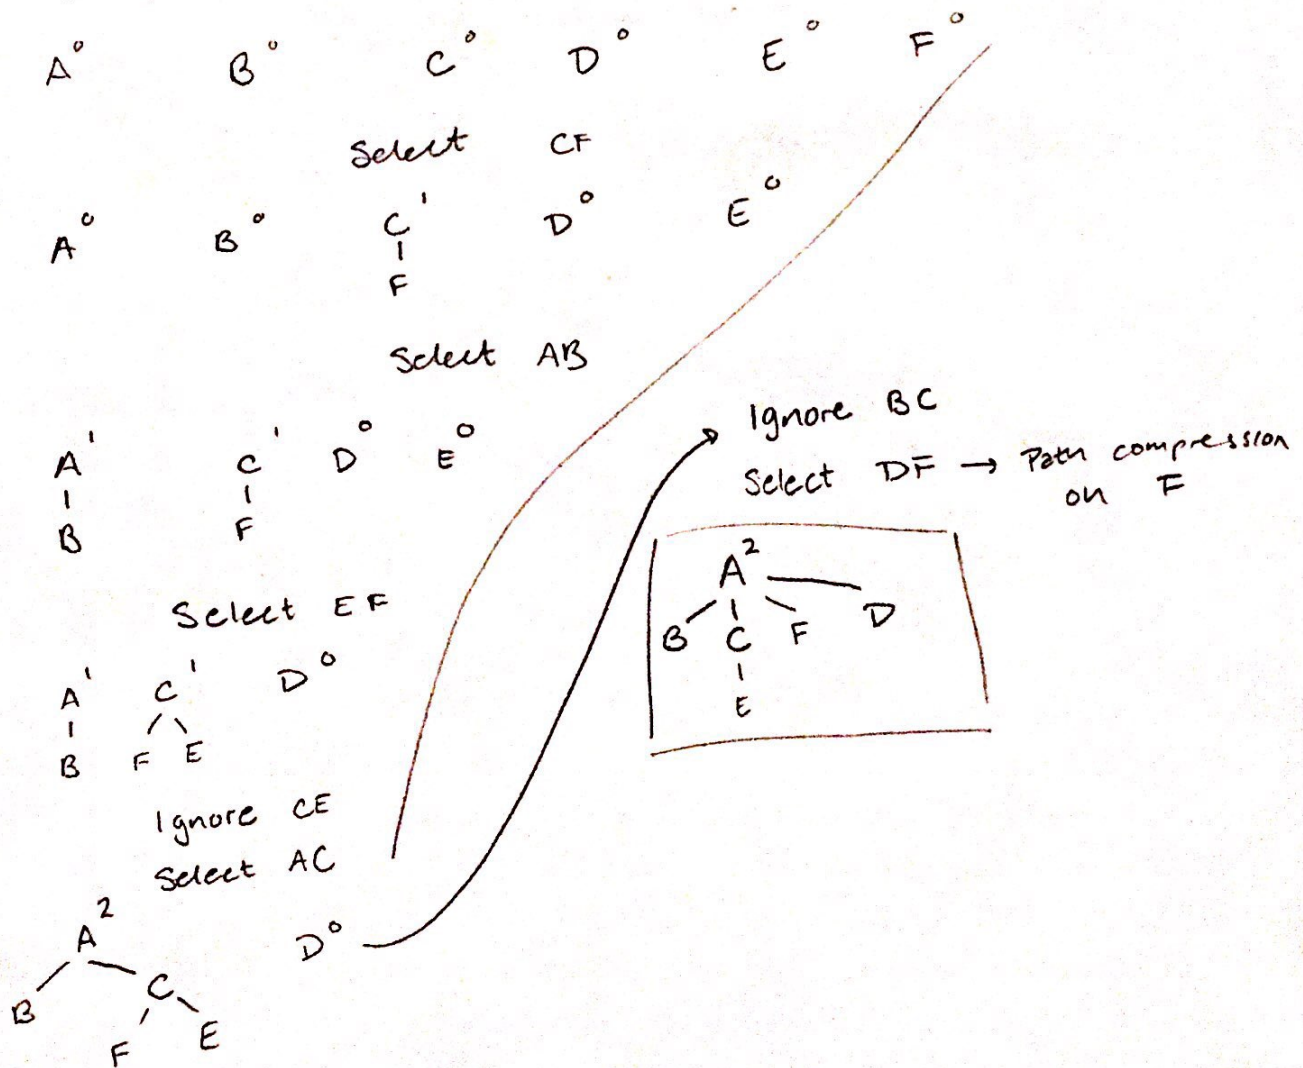 A⁰ B⁰ C⁰ D⁰ E⁰ F⁰
Select CF
A⁰ B⁰ C¹ D⁰ E⁰
F
Select AB
A¹ C¹ D⁰ E⁰
B F
Select EF
A¹ C¹ D⁰
B F E
Ignore CE
Select AC
A² D⁰
B C
F E
Ignore BC
Select DF → Path compression
on F
A²
B C F D
E